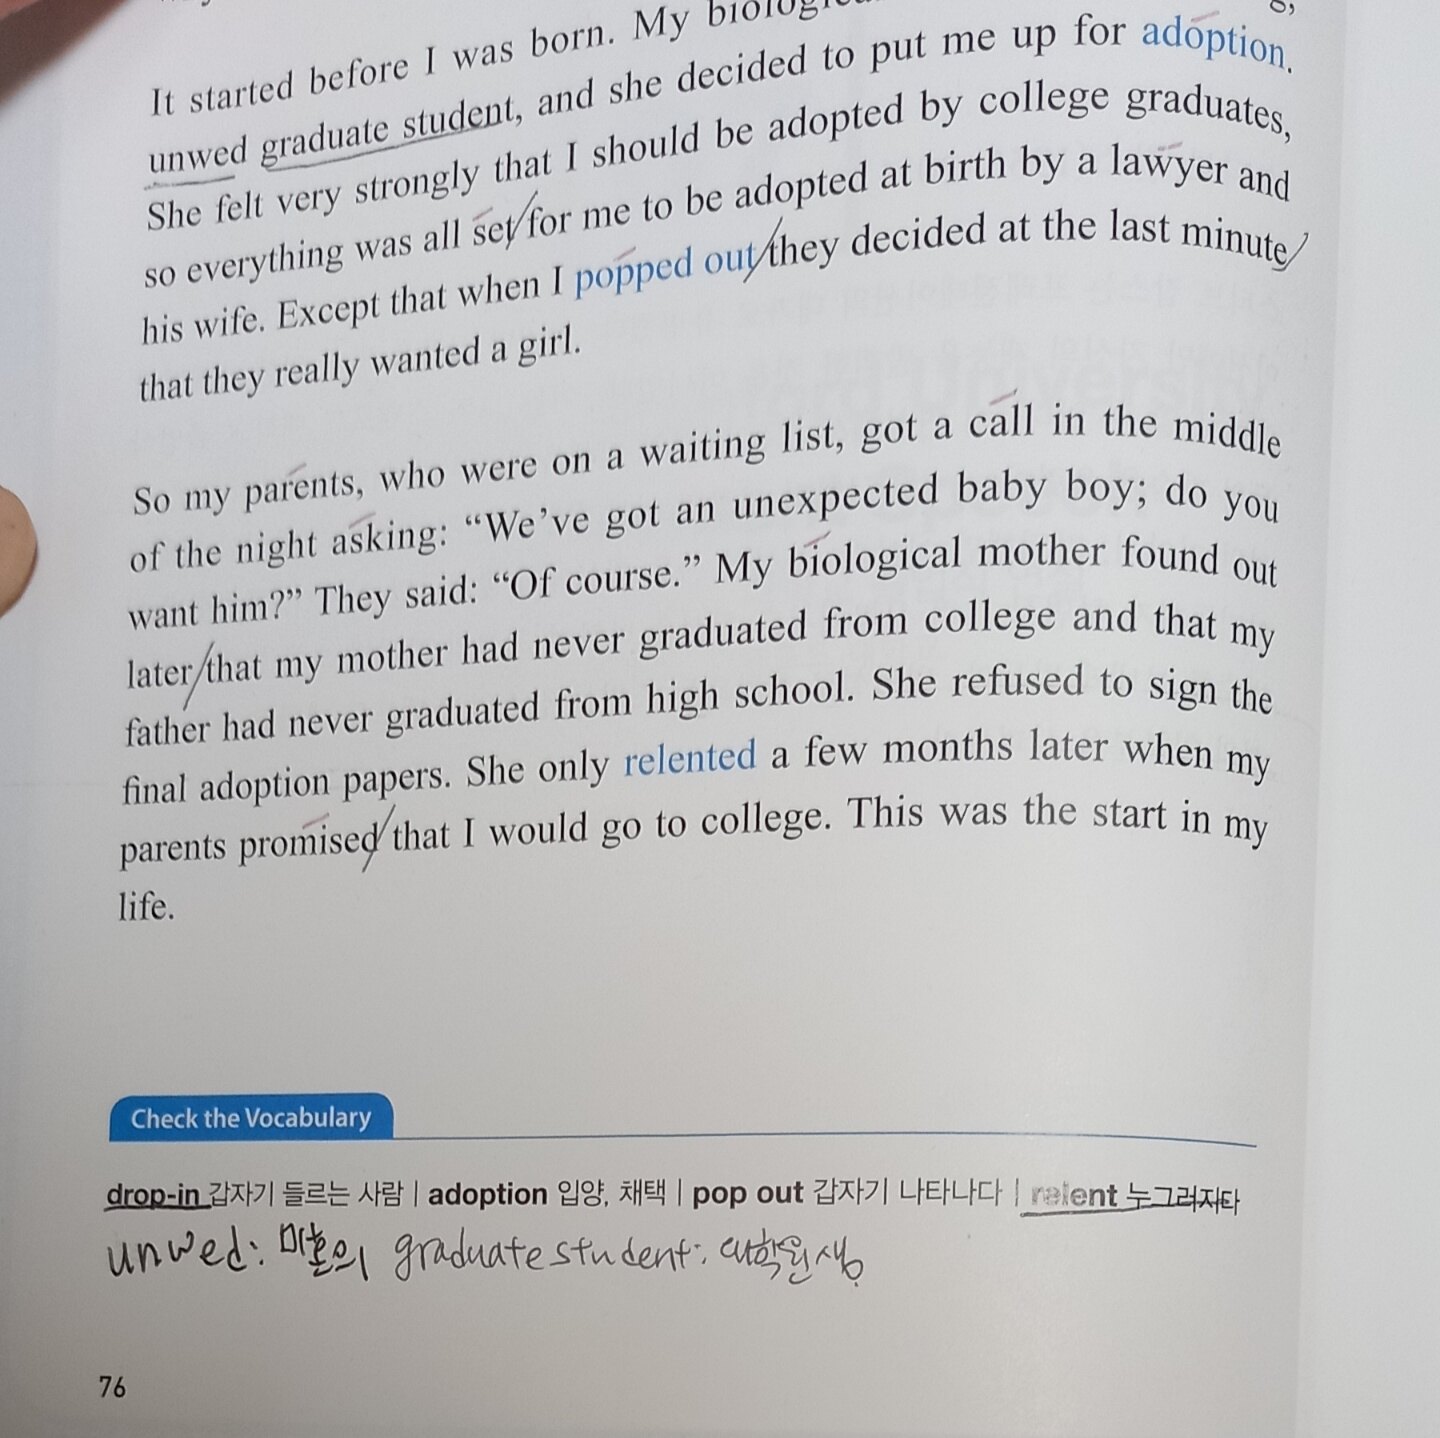 It started before I was born. My
unwed graduate student, and she decided to put me up for adoption.
She felt very strongly that I should be adopted by college graduates,
so everything was all set for me to be adopted at birth by a lawyer and
his wife. Except that when I popped out they decided at the last minute
that they really wanted a girl.
So my parents, who were on a waiting list, got a call in the middle
of the night asking: “We’ve got an unexpected baby boy; do you
want him?” They said: “Of course.” My biological mother found out
later that my mother had never graduated from college and that my
father had never graduated from high school. She refused to sign the
final adoption papers. She only relented a few months later when my
parents promised that I would go to college. This was the start in my
life.
Check the Vocabulary
drop-in 갑자기 들르는 사람 | adoption 입양, 채택 | pop out 갑자기 나타나다 | relent 누그러지다
unwed: 미혼의 graduate student: 대학원생
76